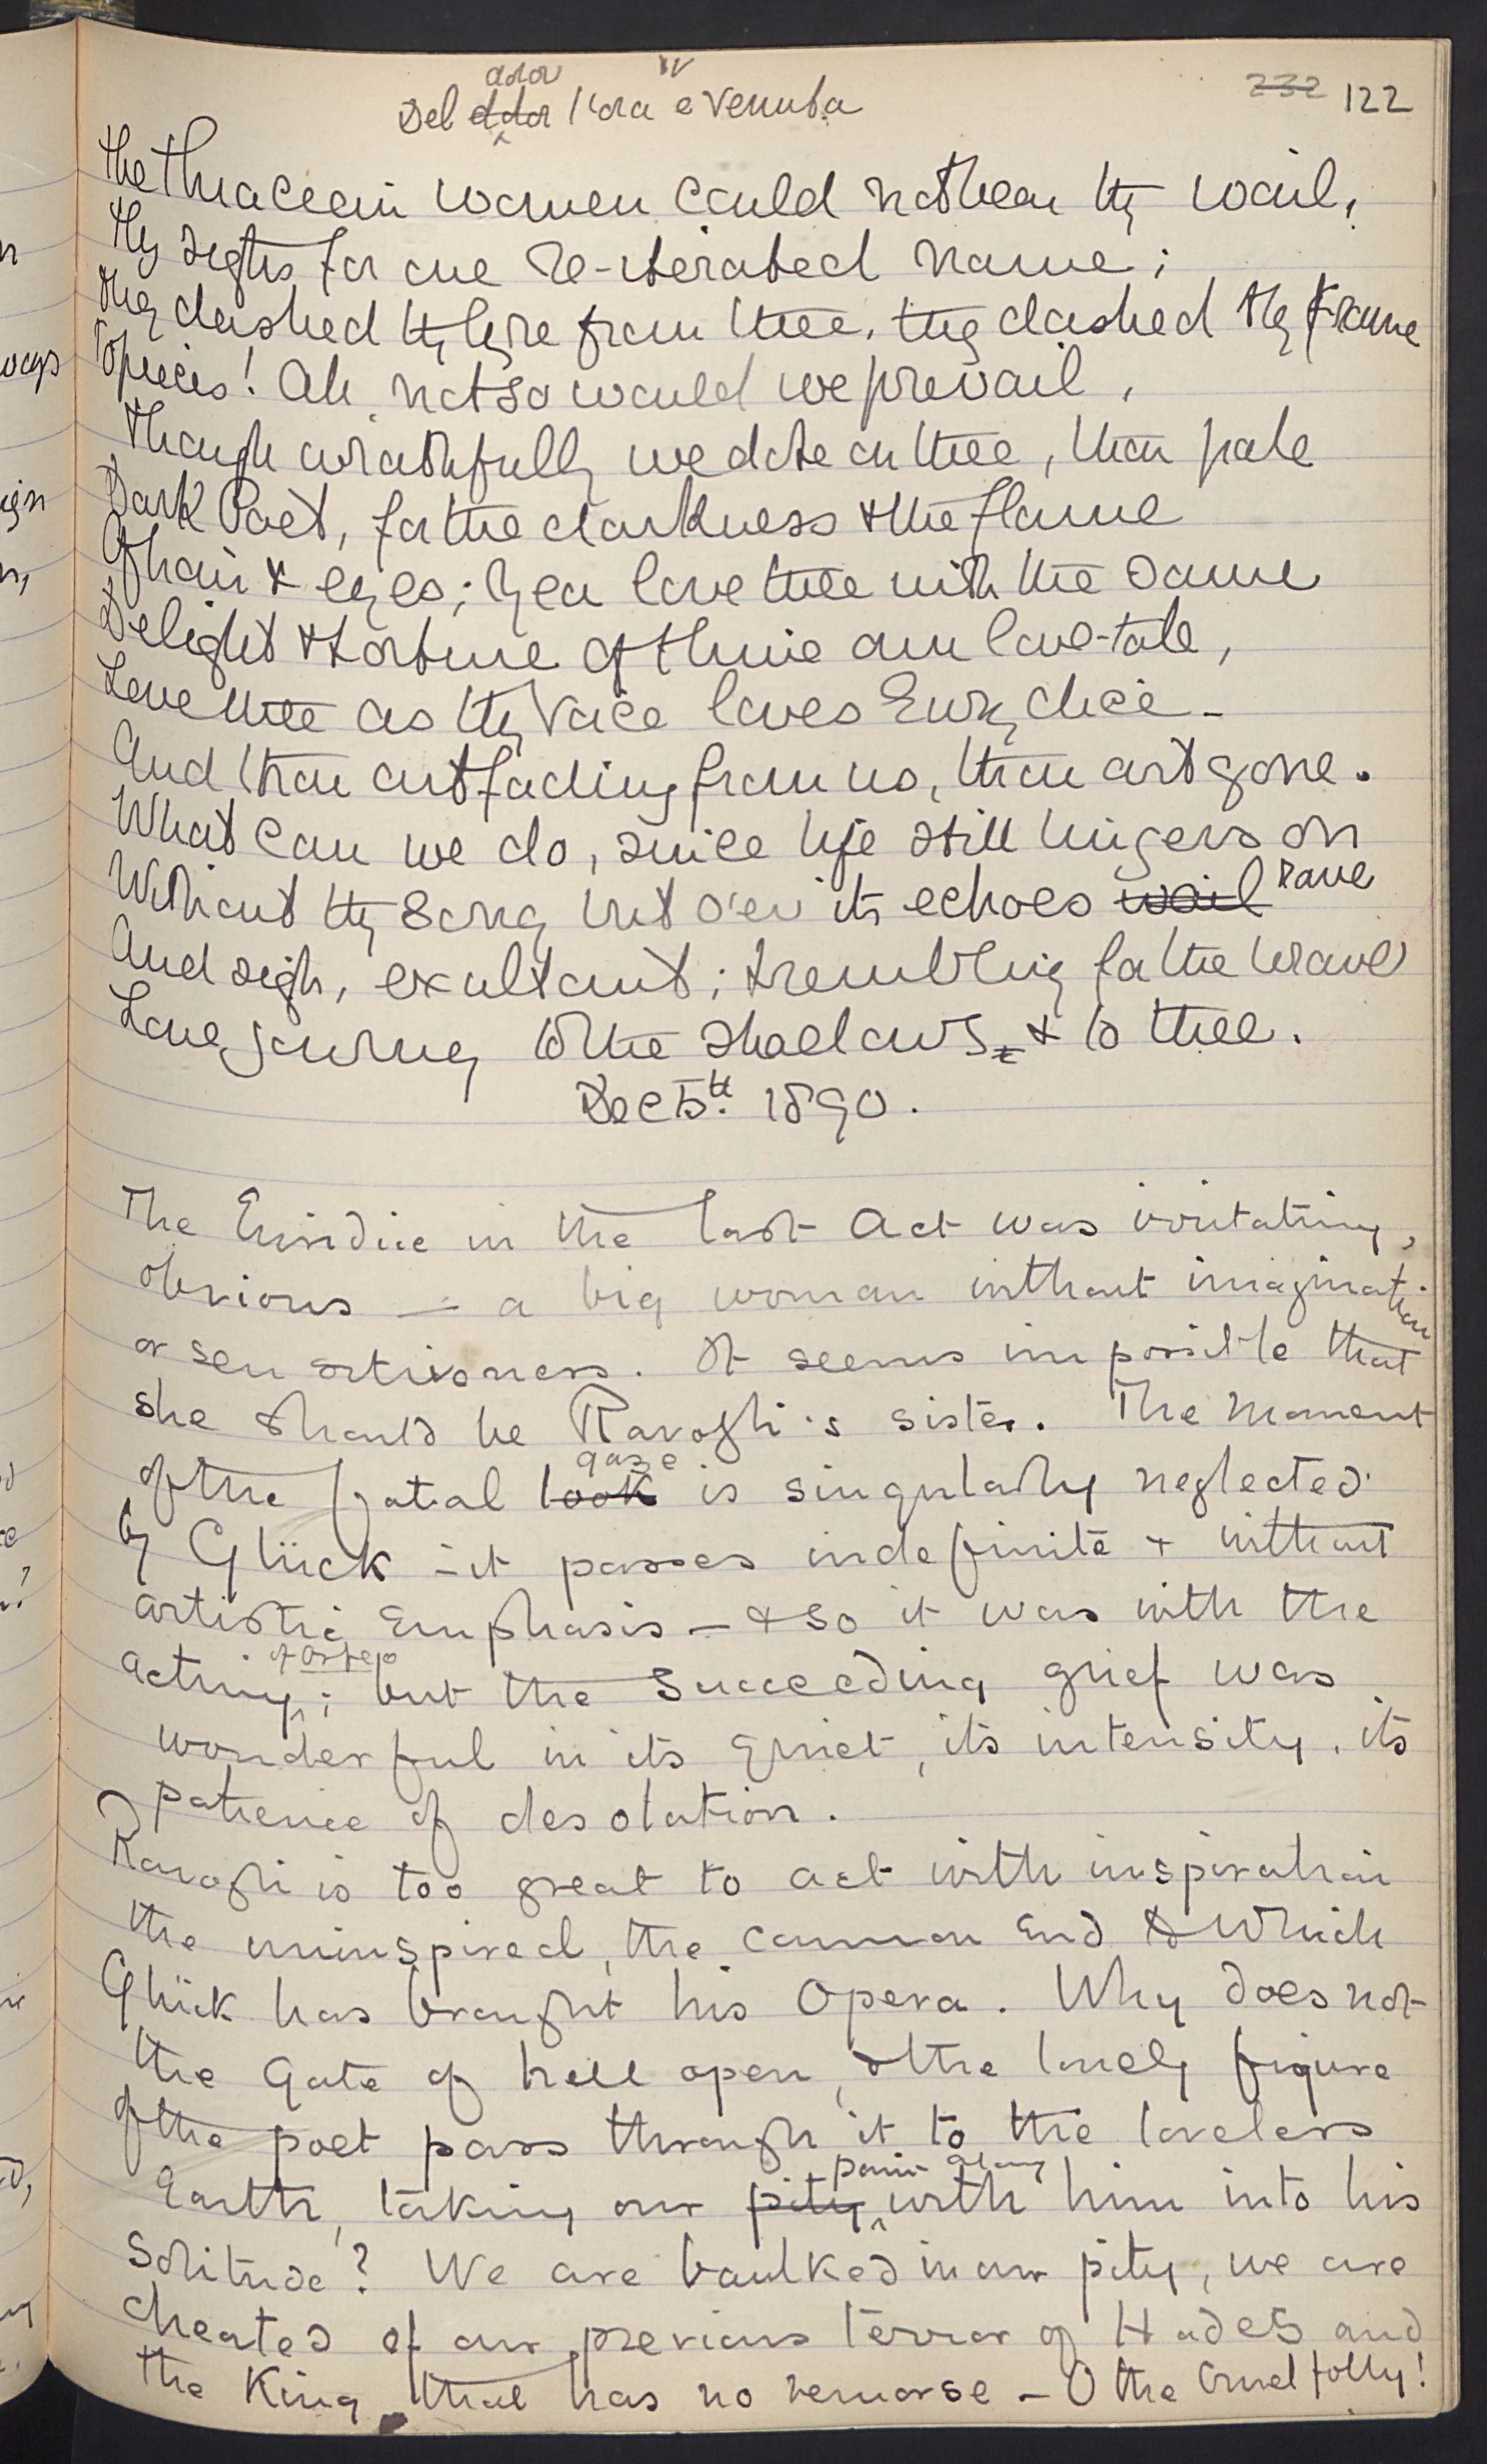 232 122
ador
Del ddor l'ora e venuta
The Thraceain women could not bear thy wail,
Thy sighs for one re-iterated name;
They dashed thy lyre from thee, they dashed thy frame
To pieces! Ah not so would we prevail,
Though wrathfully we dote on thee, thou pale
Dark Poet, for the darkness & the flame
Of hair & eyes; yea love thee with the same
Delight & torture of thine own love-tale,
Love thee as thy voice loves Eurydice -
And thou art fading from us, thou art gone.
What can we do, since life still lingers on
Without thy song but o'er its echoes wail rave
And sigh, exultant; trembling for the brave
Long journey to the shadows & to thee.
Dec 5th. 1890.
The Euridice in the last act was irritating,
obvious — a big woman without imagination
or sensitiveness. It seems impossible that
she should be Ravogli's sister. The moment
gaze
of the fatal look is singularly neglected
by Glück - it passes indefinite & without
artistic emphasis - & so it was with the
of Orfeo
acting; but the succeeding grief was
wonderful in its quiet, its intensity, its
patience of desolation.
Ravogli is too great to act with inspiration
the uninspired, the common end to which
Glück has brought his Opera. Why does not
the gate of hell open, & the lonely figure
of the poet pass through it to the loveless
pain along
Earth, taking our pity with him into his
Solitude? We are baulked in our pity, we are
cheated of our previous terror of Hades and
the King that has no remorse - O the cruel folly!